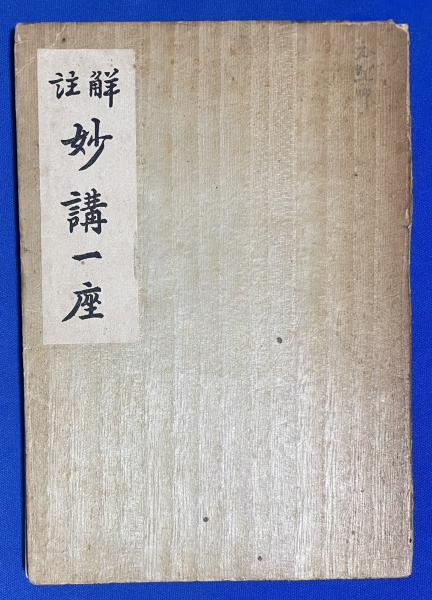 解註
妙講一座